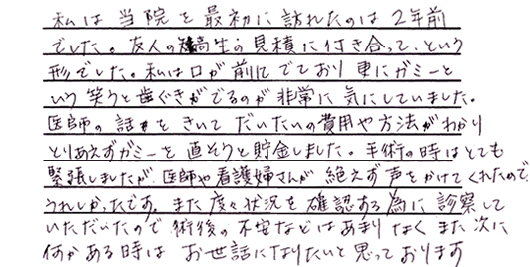 私は当院を最初に訪れたのは2年前
でした。友人の高生の見積に付き合って、という
形でした。私は口が前にでており更にガミーと
いう笑うと歯ぐきがでるのが非常に気にしていました。
医師の話をきいてだいたいの費用や方法がわかり
とりあえずガミーを直そうと貯金しました。手術の時はとても
緊張しましたが、医師や看護婦さんが絶えず声をかけてくれたので、
うれしかったです。また度々状況を確認する為に診察して
いただいたので術後の不安などはあまりなくまた次に
何かある時はお世話になりたいと思っております